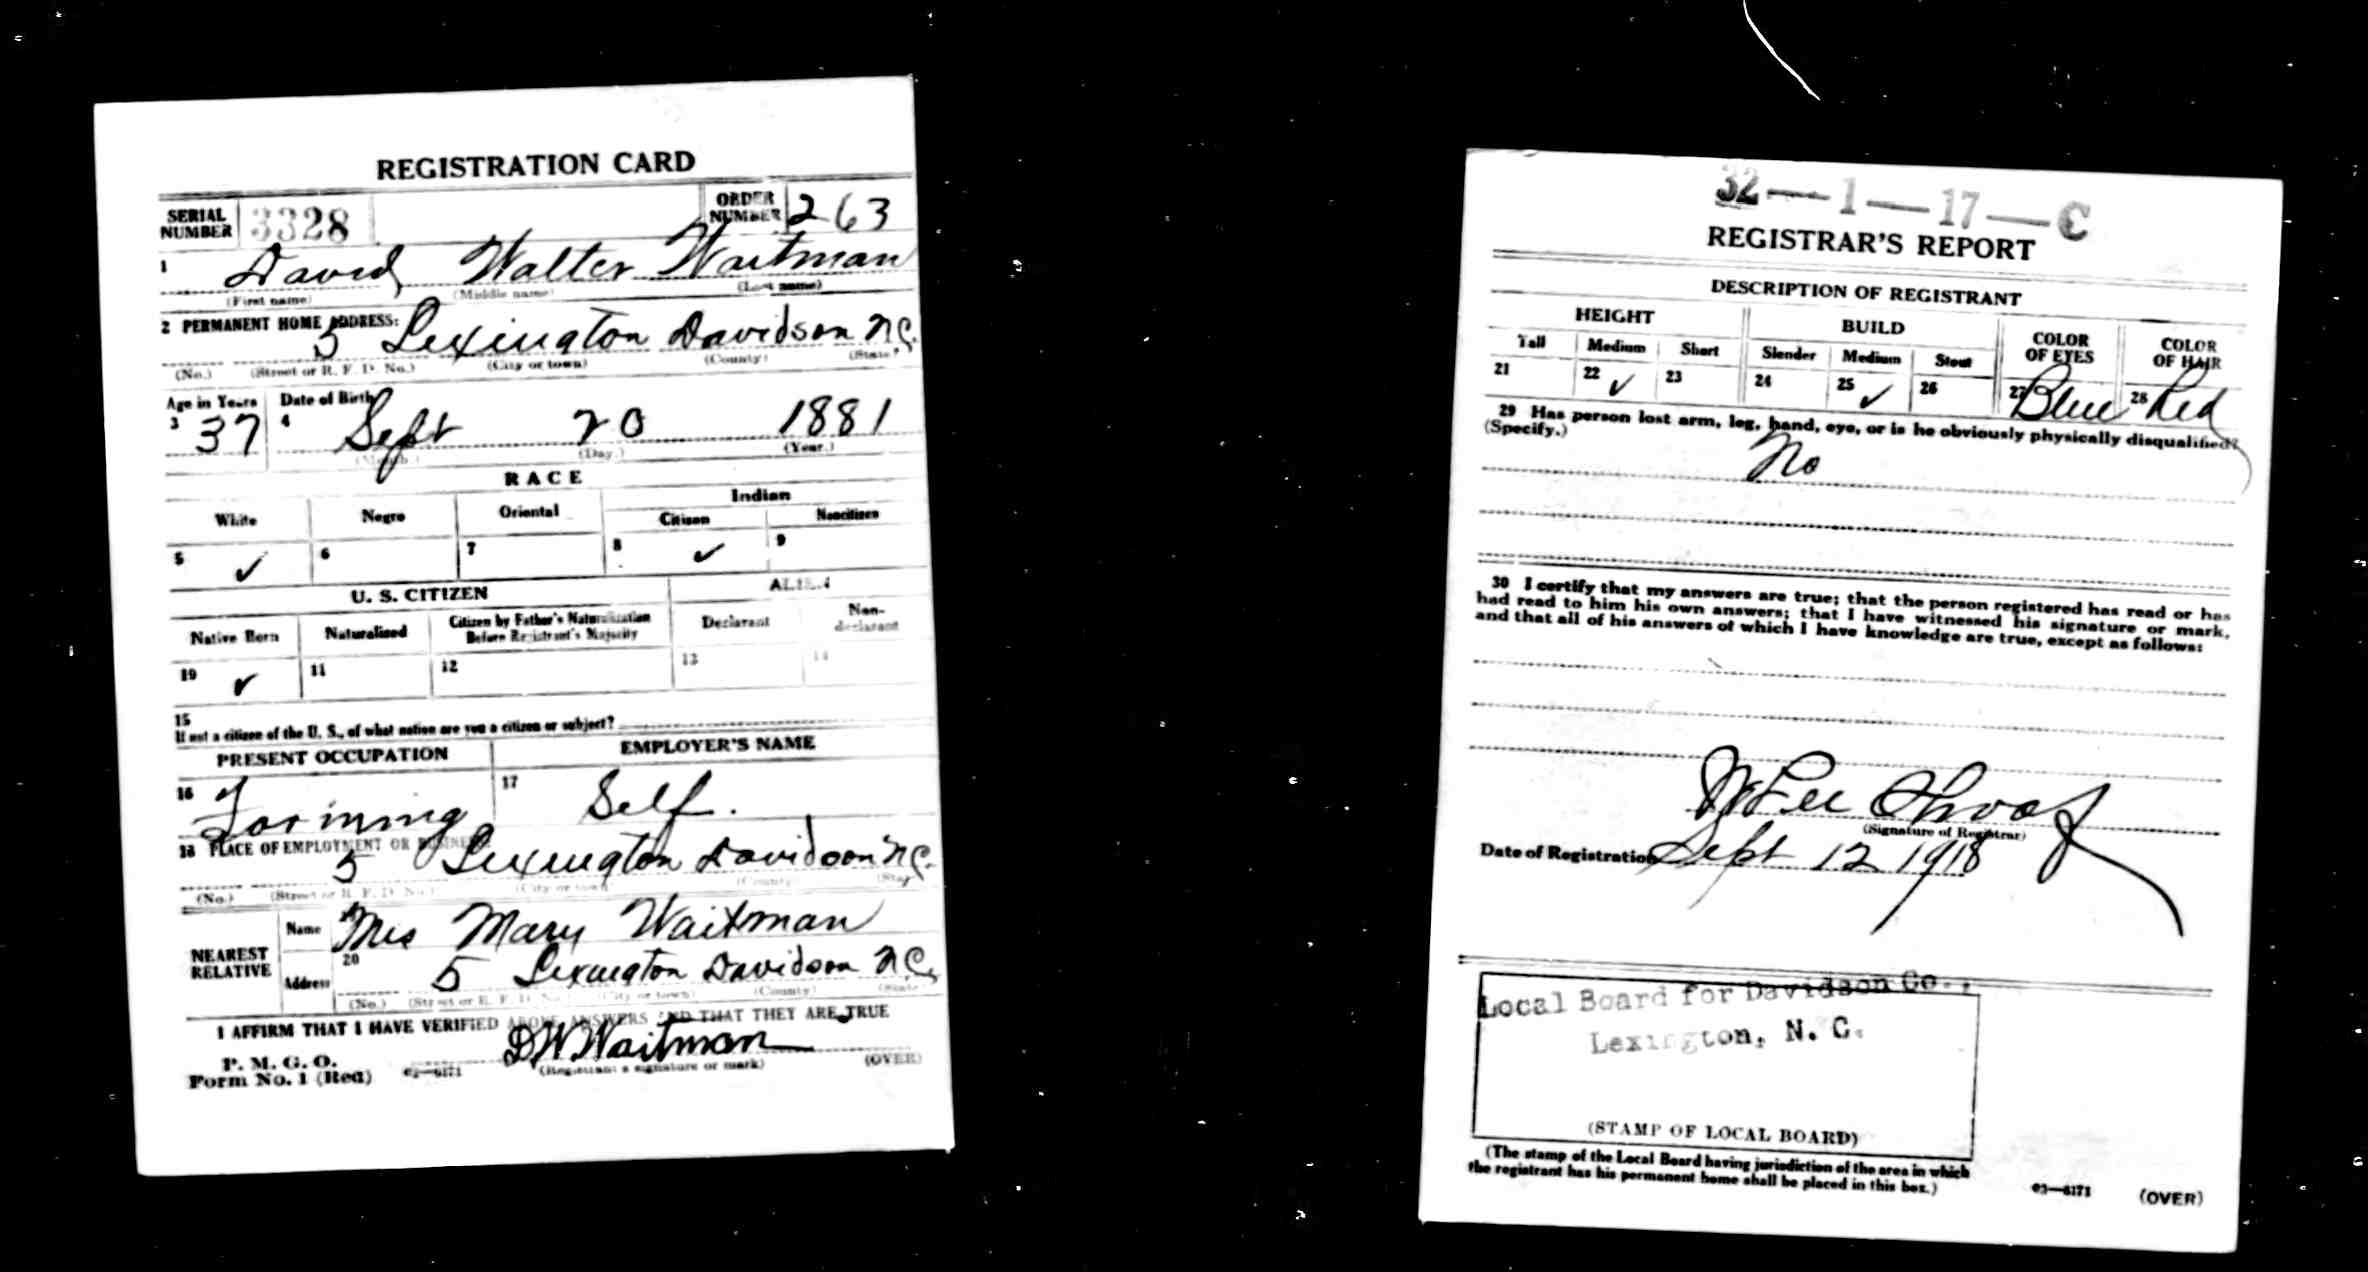 REGISTRATION CARD
SERIAL NUMBER 3328 ORDER NUMBER 263
1 David Walter Waitman
(First name) (Middle name) (Last name)
2 PERMANENT HOME ADDRESS:
5 Lexington Davidson N.C.
(No.) (Street or R. F. D. No.) (City or town) (County) (State)
Age in Years Date of Birth
3 37 4 Sept 20 1881
(Month.) (Day.) (Year.)
RACE
White Negro Oriental Indian
Citizen Noncitizen
5 ✓ 6 7 8 ✓ 9
U. S. CITIZEN ALIEN
Native Born Naturalized Citizen by Father's Naturalization Before Registrant's Majority Declarant Non-declarant
10 ✓ 11 12 13 14
15
If not a citizen of the U. S., of what nation are you a citizen or subject?
PRESENT OCCUPATION EMPLOYER'S NAME
16 Farming 17 Self.
18 PLACE OF EMPLOYMENT OR BUSINESS:
5 Lexington Davidson N.C.
(No.) (Street or R. F. D. No.) (City or town) (County) (State)
NEAREST RELATIVE Name Mrs Mary Waitman
20 Address 5 Lexington Davidson N.C.
(No.) (Street or R. F. D. No.) (City or town) (County) (State)
I AFFIRM THAT I HAVE VERIFIED ABOVE ANSWERS AND THAT THEY ARE TRUE
P. M. G. O.
Form No. 1 (Red) 03—6171 D W Waitman
(Registrant's signature or mark) (OVER)
32—1—17—C
REGISTRAR'S REPORT
DESCRIPTION OF REGISTRANT
HEIGHT BUILD COLOR OF EYES COLOR OF HAIR
Tall Medium Short Slender Medium Stout
21 22 ✓ 23 24 25 ✓ 26 27 Blue 28 Red
29 Has person lost arm, leg, hand, eye, or is he obviously physically disqualified?
(Specify.)
No
30 I certify that my answers are true; that the person registered has read or has
had read to him his own answers; that I have witnessed his signature or mark,
and that all of his answers of which I have knowledge are true, except as follows:
(Signature of Registrar)
Date of Registration Sept 12 1918
Local Board for Davidson Co.,
Lexington, N. C.
(STAMP OF LOCAL BOARD)
(The stamp of the Local Board having jurisdiction of the area in which
the registrant has his permanent home shall be placed in this box.)
03—6171 (OVER)